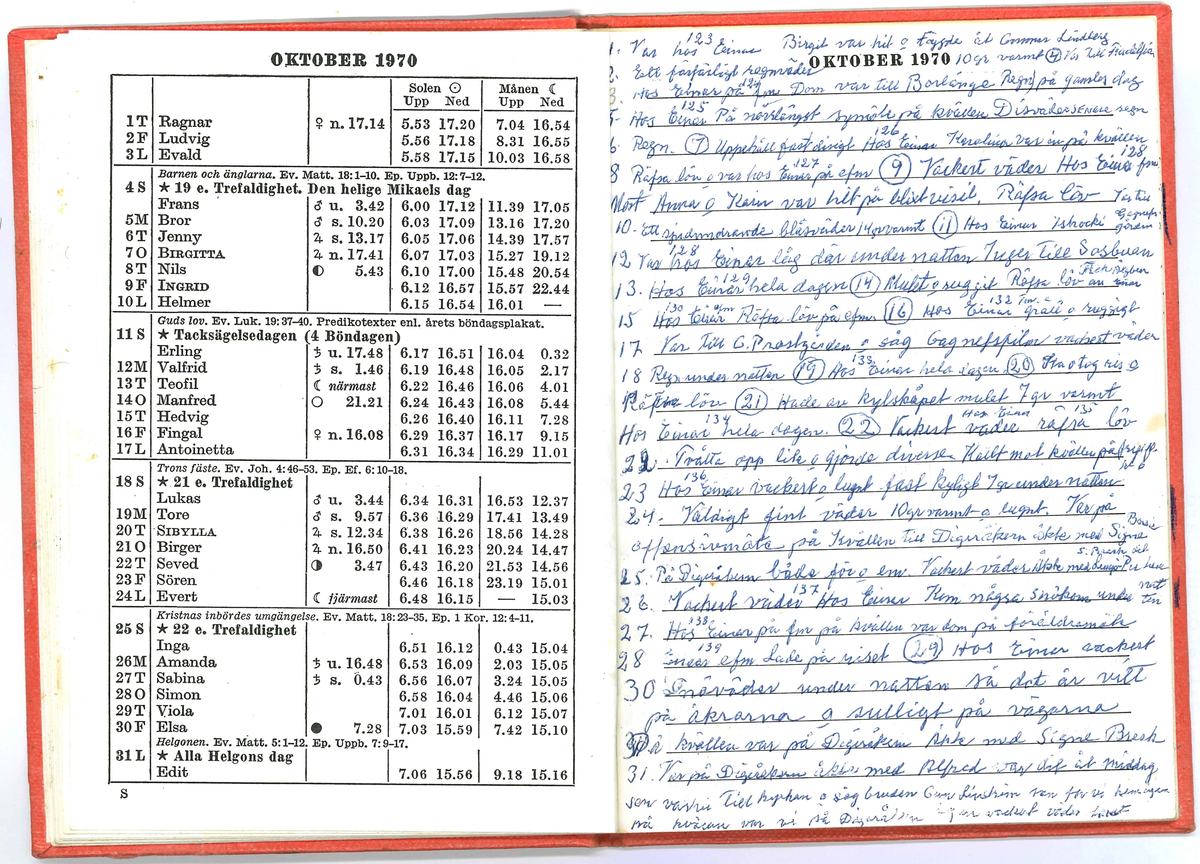 OKTOBER 1970
Solen ☉ Månen ☾
Upp Ned Upp Ned
1 T Ragnar ♀ n. 17.14 5.53 17.20 7.04 16.54
2 F Ludvig 5.56 17.18 8.31 16.55
3 L Evald 5.58 17.15 10.03 16.58
Barnen och änglarna. Ev. Matt. 18:1-10. Ep. Uppb. 12:7-12.
4 S ★ 19 e. Trefaldighet. Den helige Mikaels dag
Frans ♂ u. 3.42 6.00 17.12 11.39 17.05
5 M Bror ♂ s. 10.20 6.03 17.09 13.16 17.20
6 T Jenny ♃ s. 13.17 6.05 17.06 14.39 17.57
7 O BIRGITTA ♃ n. 17.41 6.07 17.03 15.27 19.12
8 T Nils ◐ 5.43 6.10 17.00 15.48 20.54
9 F INGRID 6.12 16.57 15.57 22.44
10 L Helmer 6.15 16.54 16.01 —
Guds lov. Ev. Luk. 19:37-40. Predikotexter enl. årets böndagsplakat.
11 S ★ Tacksägelsedagen (4 Böndagen)
Erling ♄ u. 17.48 6.17 16.51 16.04 0.32
12 M Valfrid ♄ s. 1.46 6.19 16.48 16.05 2.17
13 T Teofil ☾ närmast 6.22 16.46 16.06 4.01
14 O Manfred ○ 21.21 6.24 16.43 16.08 5.44
15 T Hedvig 6.26 16.40 16.11 7.28
16 F Fingal ♀ n. 16.08 6.29 16.37 16.17 9.15
17 L Antoinetta 6.31 16.34 16.29 11.01
Trons fäste. Ev. Joh. 4:46-53. Ep. Ef. 6:10-18.
18 S ★ 21 e. Trefaldighet
Lukas ♂ u. 3.44 6.34 16.31 16.53 12.37
19 M Tore ♂ s. 9.57 6.36 16.29 17.41 13.49
20 T SIBYLLA ♃ s. 12.34 6.38 16.26 18.56 14.28
21 O Birger ♃ n. 16.50 6.41 16.23 20.24 14.47
22 T Seved ◑ 3.47 6.43 16.20 21.53 14.56
23 F Sören 6.46 16.18 23.19 15.01
24 L Evert ☾ fjärmast 6.48 16.15 — 15.03
Kristnas inbördes umgängelse. Ev. Matt. 18:23-35. Ep. 1 Kor. 12:4-11.
25 S ★ 22 e. Trefaldighet
Inga 6.51 16.12 0.43 15.04
26 M Amanda ♄ u. 16.48 6.53 16.09 2.03 15.05
27 T Sabina ♄ s. 0.43 6.56 16.07 3.24 15.05
28 O Simon 6.58 16.04 4.46 15.06
29 T Viola 7.01 16.01 6.12 15.07
30 F Elsa ● 7.28 7.03 15.59 7.42 15.10
Helgonen. Ev. Matt. 5:1-12. Ep. Uppb. 7:9-17.
31 L ★ Alla Helgons dag
Edit 7.06 15.56 9.18 15.16
S
123
1. Var hos Einar Birgit var hit o åt Gunnar Lindberg
OKTOBER 1970
2. Ett förfärligt regnväder 10 gr varmt 4 Var till
3 Hos Einar på fm Dom var till Borlänge Regn på gamles dag
125
5. Hos Einar På symöte på kvällen Disväder senare regn
126
6. Regn. 7 Uppehåll fast disigt Hos Einar Karolina var in på kvällen
127 128
8 Räfsa löv o var hos Einar på efm 9 Vackert väder Hos Einar fm
Anna o Karin var hit på blixtvisit. Räfsa löv
10. Ett blåsväder 14 gr varmt 11 Hos Einar
128
12 Var hos Einar låg där under natten Inger till
129
13. Hos Einar hela dagen 14 Mulet o ruggit Räfsa löv
130 132
15 Hos Einar Räfsa löv på efm 16 Hos Einar grått o ruggigt
17 Var till G. Prostgården o såg Gagnefspilen vackert väder
133
18 Regn under natten 19 Hos Einar hela dagen 20
Räfsa löv 21 Hade av kylskåpet mulet 7 gr varmt
134 Hos Einar 135
Hos Einar hela dagen. 22 Vackert väder räfsa löv
22. Tvätta opp lite o gjorde diverse Kallt mot kvällen
136
23 Hos Einar vackert o lugnt fast kyligt 7 gr under natten
24. Väldigt fint väder 10 gr varmt o lugnt. Var på
på kvällen till Digeråkern åkte med Signe
25. På Digeråkern båda för o em. Vackert väder åkte med
137
26. Vackert väder Hos Einar Kom några snökorn under natten
138
27. Hos Einar på fm på kvällen var dom på föräldramöte
139
28 Einar efm Lade på riset 29 Hos Einar vackert
30 Snöväder under natten så det är vitt
på åkrarna o sulligt på vägarna
På kvällen var på Digeråkern åkte med Signe Bresk
31. Var på Digeråkern åkte med Alfred var dit åt middag
sen var vi till kyrkan o såg bruden Gun
på kvällen var vi på Digeråkern vackert väder